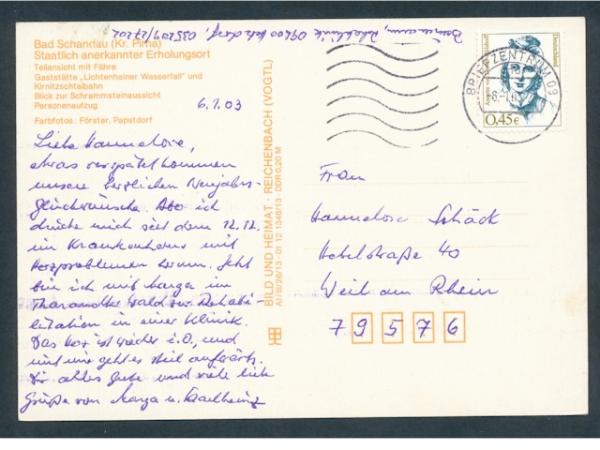 Bad Schandau (Kr. Pirna)
Staatlich anerkannter Erholungsort
Teilansicht mit Fähre
Gaststätte „Lichtenhainer Wasserfall" und
Kirnitzschtalbahn
Blick zur Schrammsteinaussicht
Personenaufzug
Farbfotos: Förster, Papstdorf
6.1.03
Liebe Hannelore,
etwas verspätet kommen
unsere herzlichen Neujahrs-
glückwünsche. Aber ich
drücke mich seit dem 12.12.
im Krankenhaus mit
Herzproblemen herum. Jetzt
bin ich mit Marga im
Tharandter Wald zur Rehabi-
litation in einer Klinik.
Das Herz ist wieder i.O. und
mit mir geht es steil aufwärts.
Dir alles Gute und viele liebe
Grüße von Marga u. Karlheinz
BILD UND HEIMAT · REICHENBACH (VOGTL)
01 12 DDR 0,20 M
Rehaklinik 09600 035209/27202
BRIEFZENTRUM 09
0,45€
Frau
Hannelore Schäck
Hebelstraße 40
Weil am Rhein
79576